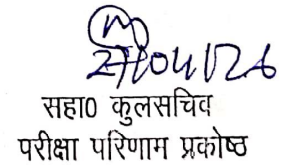 27/04/26
सहा0 कुलसचिव
परीक्षा परिणाम प्रकोष्ठ